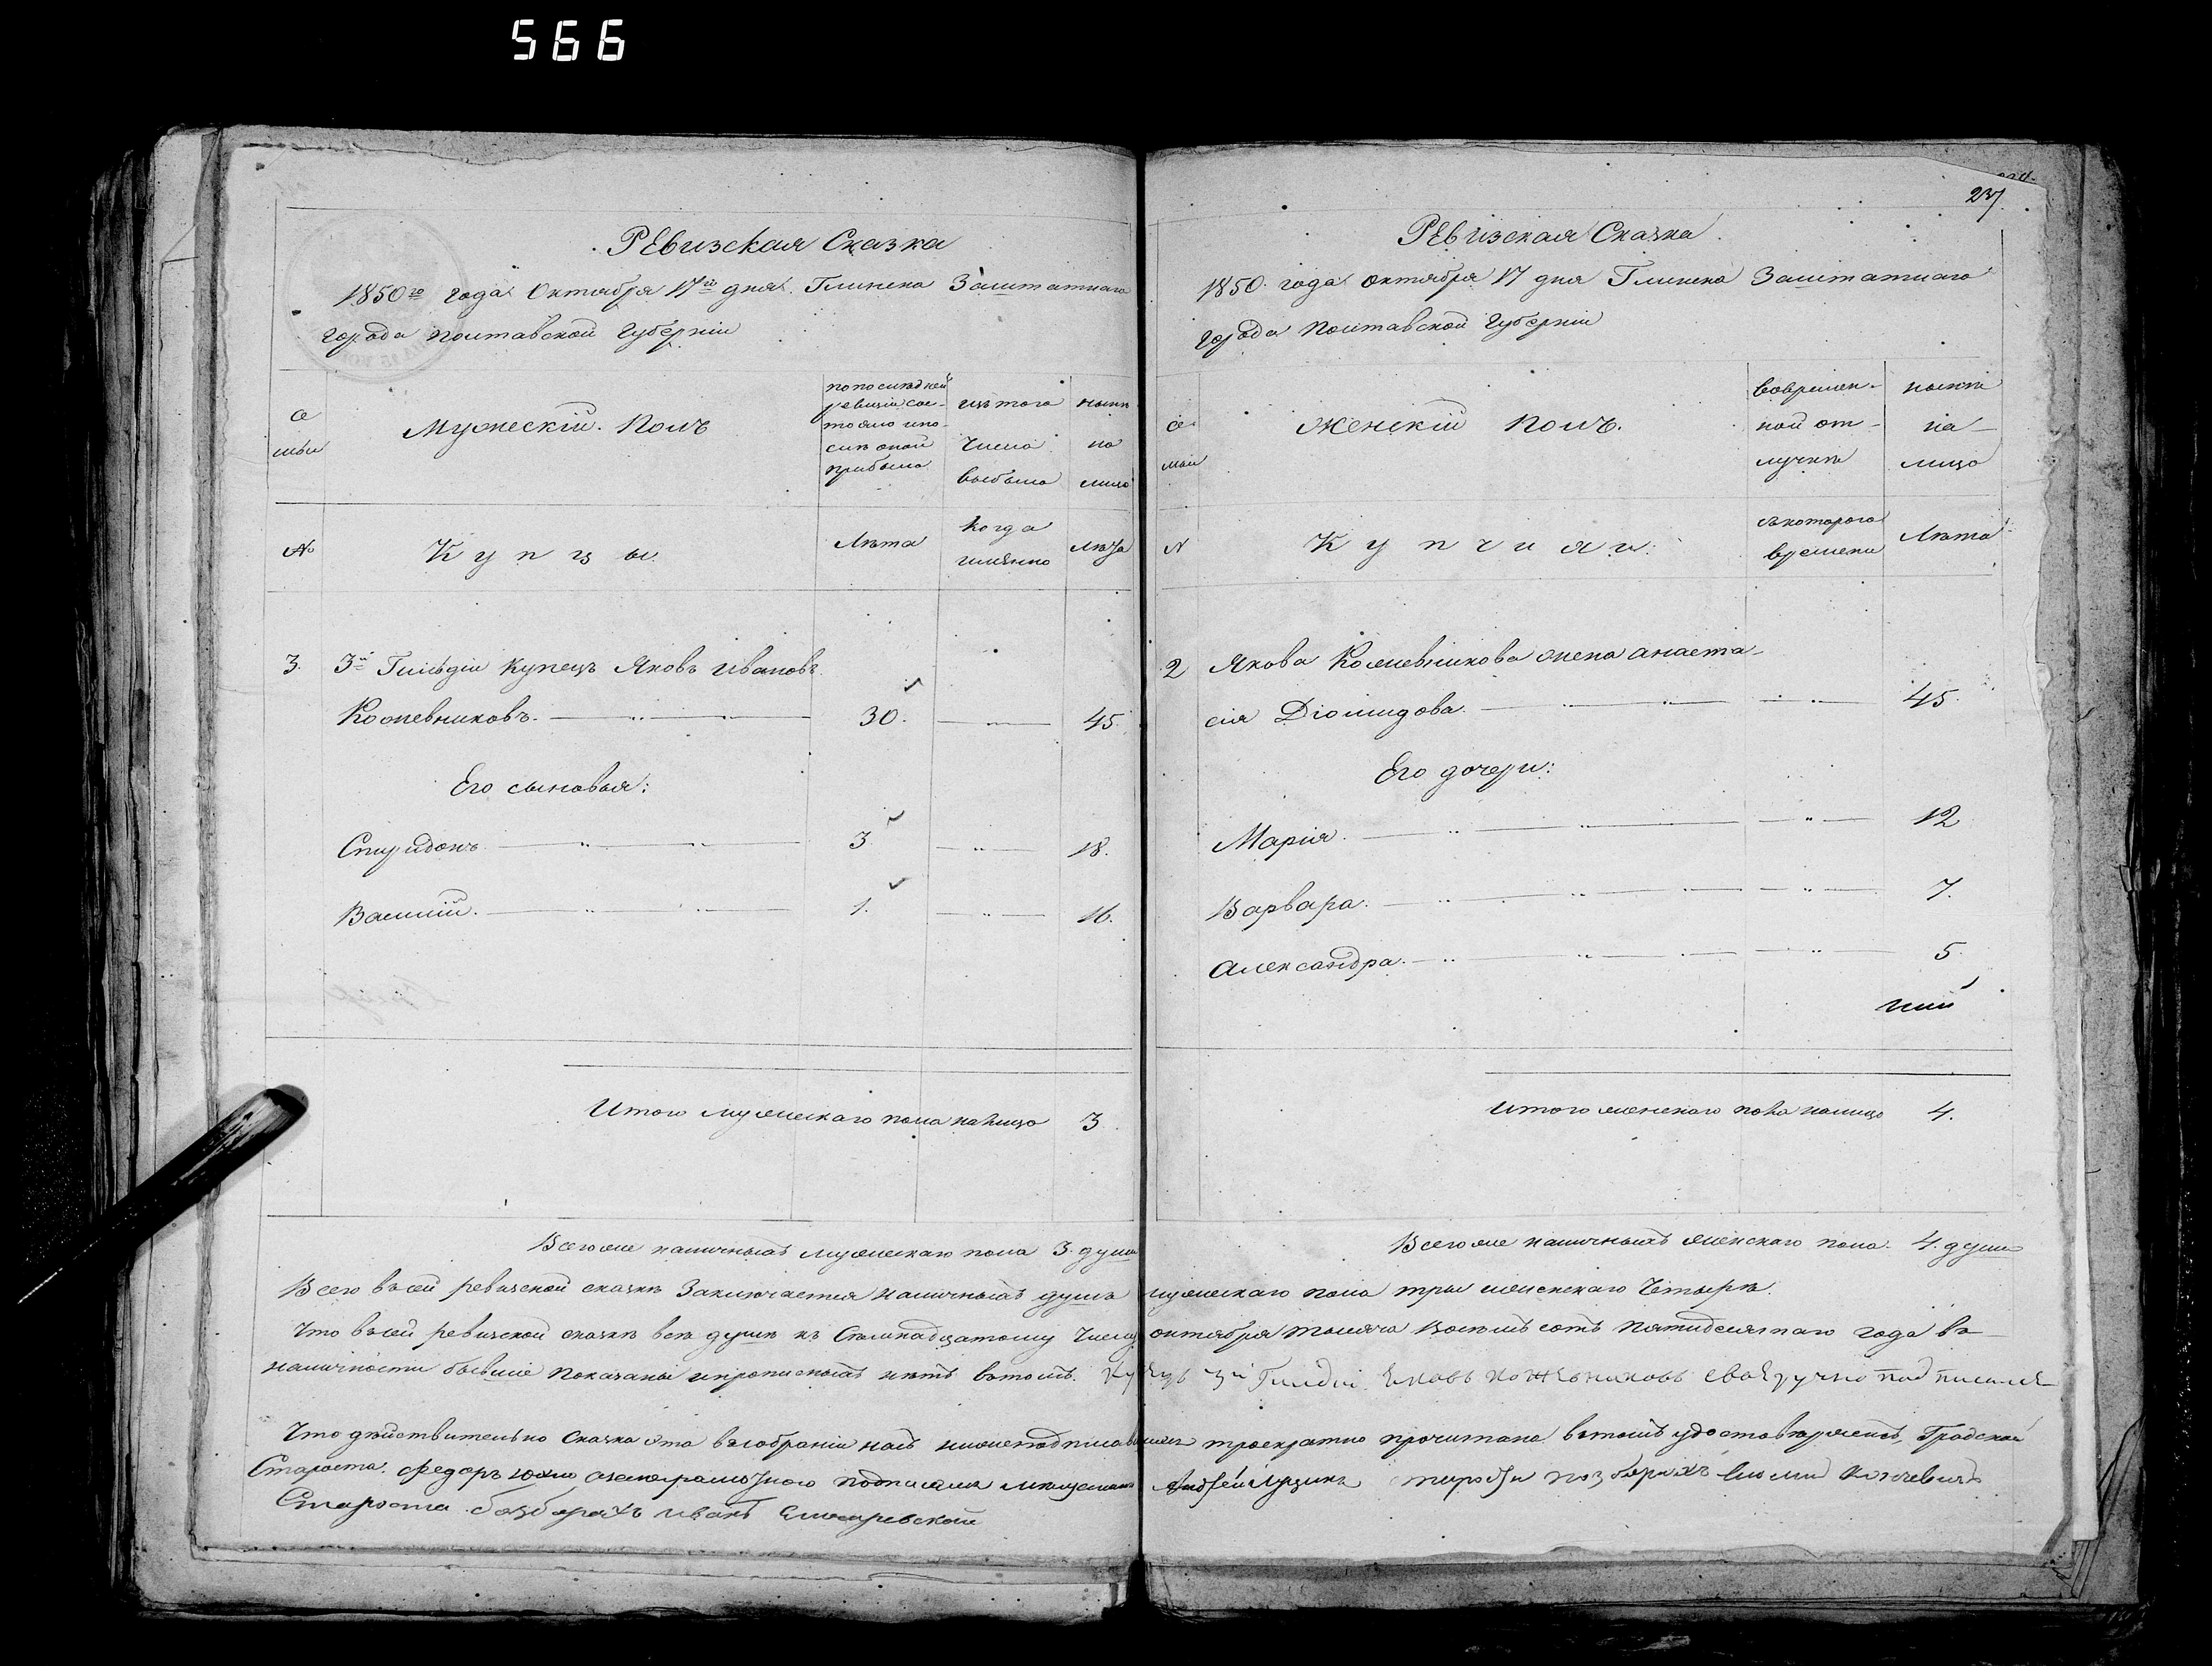 566
Ревизская Сказка
1850го года Октября 17го дня Глинска Заштатнаго
города Полтавской Губернии
Се
мьи
Мужескій Полъ
по последней
ревизіи сос-
тояло и по-
слѣ оной
прибыло
изъ того
числа
выбыло
нынѣ
на
лицо
№
Купцы
Лѣта
когда
имянно
Лѣта
3. 3й Гильдіи купецъ Яковъ Ивановъ
Кожевниковъ. 30. 45.
Его сыновья:
Спиридонъ 3 18.
Василій. 1. 16.
Итого мужескаго пола налицо 3
Всего же наличныхъ мужескаго пола 3. души
237
Ревизская Сказка
1850. года октября 17 дня Глинска Заштатнаго
города Полтавской Губерніи
Се
мьи
Женскій Полъ.
вовремен-
ной от-
лучкѣ
нынѣ
на-
лицо
№
Купчихи
съ котораго
времени
Лѣта
2 Якова Кожевникова жена Анаста-
сія Діомидова. 45.
Его дочери:
Марія. 12
Варвара. 7.
Александра. 5.
Итого женскаго пола налицо 4.
Всего же наличныхъ женскаго пола. 4. души
Всего въсей ревизской сказкѣ Заключается наличныхъ душъ мужескаго пола три женскаго Четыре.
Что въсей ревизской сказкѣ всѣ души къ Семнадцатому Числу октября тысяча восемь сотъ пятидесятаго года въ-
наличности бывшіе показаны и прописныхъ нѣтъ вътомъ. Купецъ 3й Гилдіи Яковъ Кожевниковъ своеручно подписался
Что действительно Сказка эта въсобраніи насъ нижеподписавшихся троекратно прочитана вътомъ удостоверяемъ, Градской
Староста. Федоръ подписался Андрей
Староста Иванъ